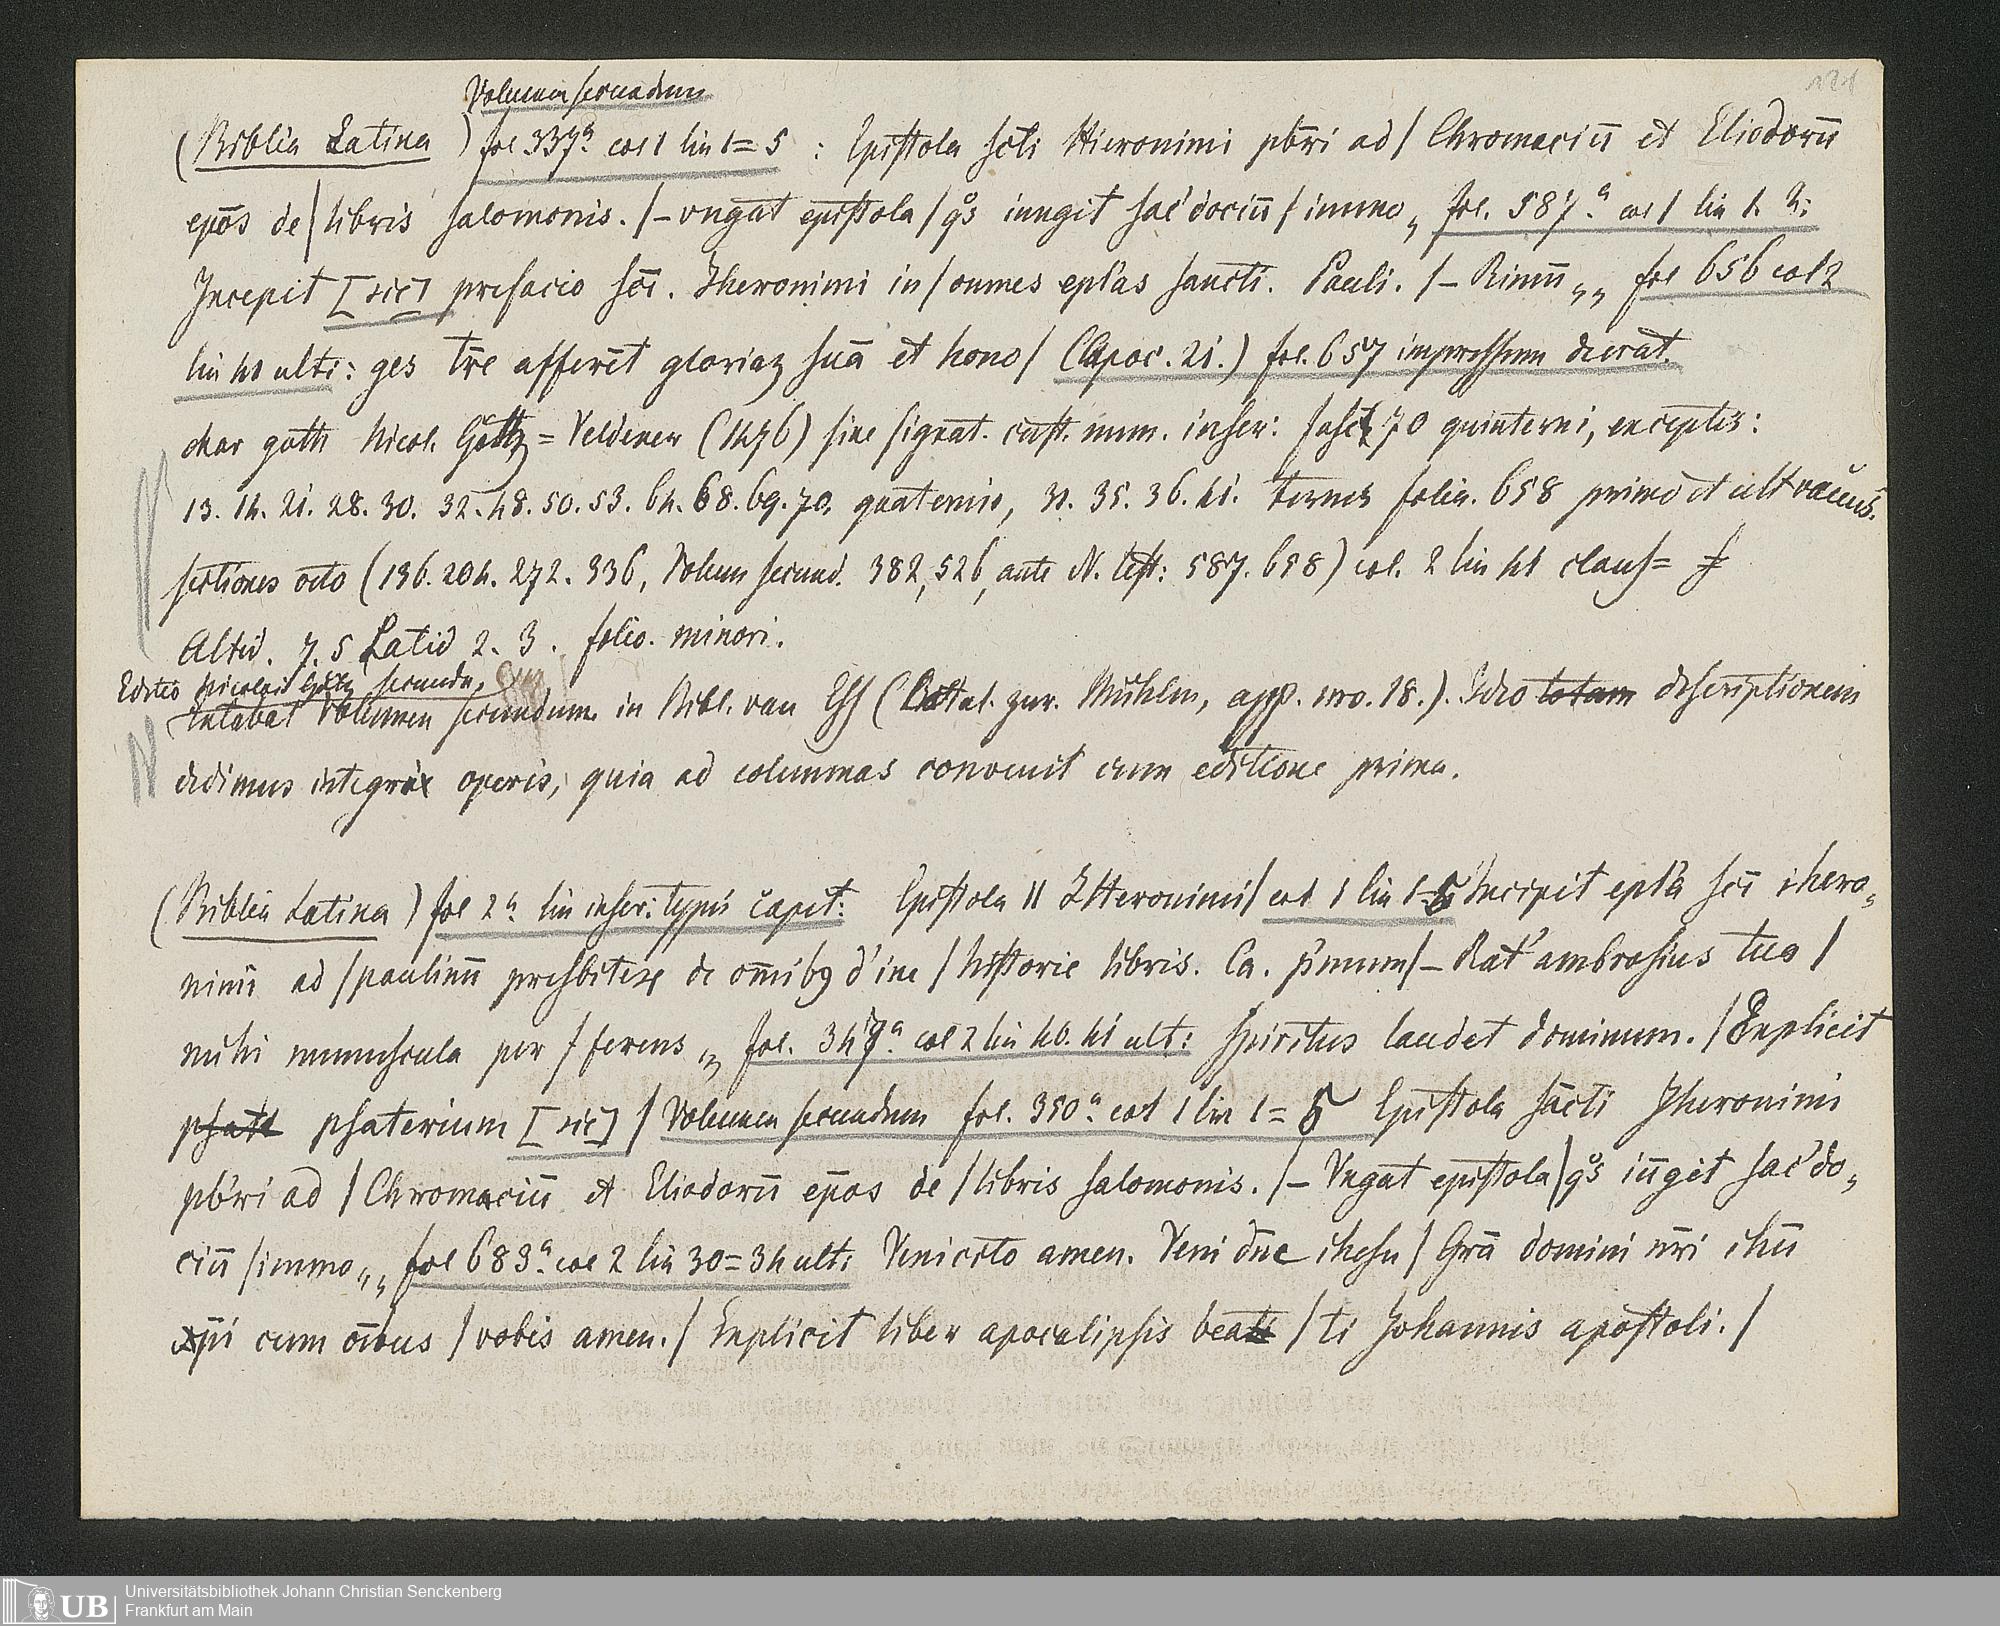 121
Volumen secundum
(Biblia Latina) fol 337ª col 1 lin 1=5 : Epistola scti Hieronimi pbr̄i ad / Chromaciū et Eliodorū
ep̄os de / libris salomonis. / – vngat epistola / qͦs iungit sac'dociū / immo „ fol. 587.ª col 1 lin 1. 2:
Incepit [sic] prefacio sc̄i. Iheronimi in / omnes ep̄l'as sancti. Pauli. / – Rimū „„ fol 656 col 2
lin 41 ult: : ges tr̄e afferēt gloriaz suā et hono / (Apoc. 21.) fol. 657 impressum deerat.
char goth Nicol. Götz = Veldener (1476) sine signat. cust. num. inscr: fasc 70 quinterni, exceptis:
13. 14. 21. 28. 30. 32. 48. 50. 53. 64. 68. 69. 70. quaternis, 31. 35. 36. 41. ternis folia. 658 primo et ult vacuis.
sectiones octo (136. 204. 272. 336, Volum secund. 382, 526, ante N. Test: 587. 658) col. 2 lin 41 claus=
Altid. 7. 5 Latid 2. 3. folio. minori.
Editio Nicolai Götz secunda,
extabat Volumen secundum in Bibl. van Ess (Catal. zur. Mühlen, app. nro. 18.). Ideo totam descriptionem
dedimus integri operis, quia ad columnas convenit cum editione prima.
(Biblia Latina) fol 2ª lin inscr: typis capit: Epistola II IHeronimi / col 1 lin 1-5 Incipit epl'a sc̄i ihero„
nimi ad / paulinū presbiterz de om̄ibꝯ d'ine / historie libris. Ca. p'mum / – Rat' ambrosius tuo /
michi munuscula per / ferens „ fol. 347ª col 2 lin 40. 41 ult: Spiritus laudet dominum. / Explicit
psalt psaterium [sic] / Volumen secundum fol. 350ª col 1 lin 1=5 Epistola sācti Iheronimi
pb'ri ad / Chromaciū et Eliodorū ep̄os de / libris salomonis. / – Vngat epistola / qͦs iūgit sac'do„
ciū / immo „„ fol 683ª col 2 lin 30=34 ult: Veni cito amen. Veni dn̄e ihesu / Grā domini nr̄i ihū
xp̄i cum oībus / vobis amen. / Explicit liber apocalipsis beati / ti Johannis apostoli. /
Universitätsbibliothek Johann Christian Senckenberg
UB Frankfurt am Main